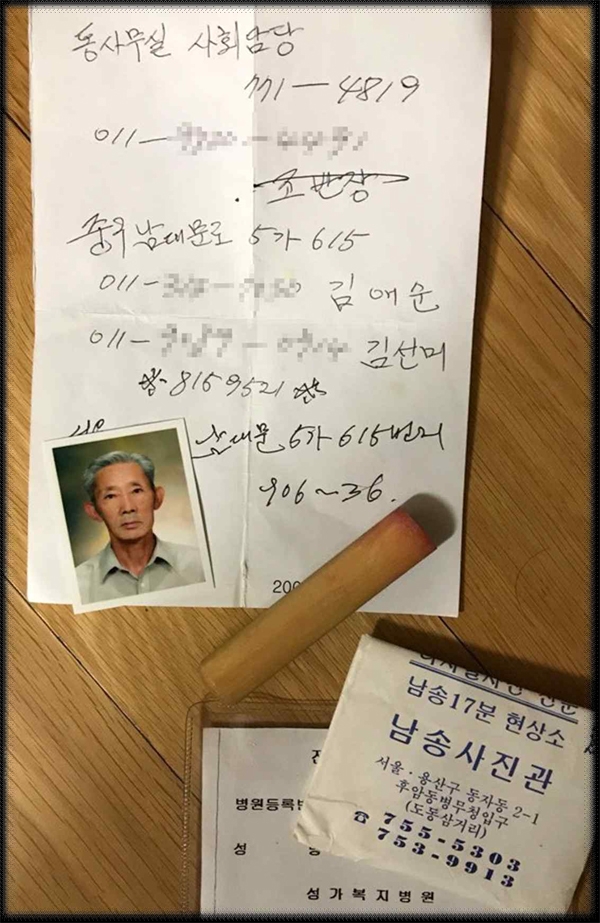 동사무실 사회담당
771-4819
011-
조반장
중구 남대문로 5가 615
011- 김애순
011- 김선미
8159521
남대문 5가 615번지
906~36.
200
남송17분 현상소
남송사진관
서울·용산구 동자동 2-1
후암동병무청입구
(도동삼거리)
☎ 755-5303
753-9913
병원등록번
성 명
성가복지병원